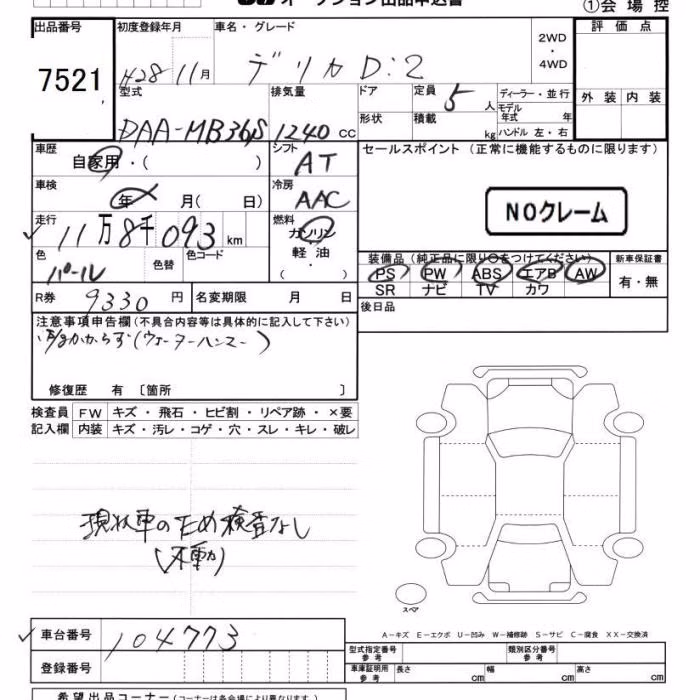 オークション出品申込書
①会場控
出品番号 初度登録年月 車名・グレード 2WD・4WD 評価点
7521 H28 11月 デリカD:2
型式 排気量 ドア 定員 5人 ディーラー・並行 外装 内装
DAA-MB36S 1240 cc 形状 積載 kg モデル年式 年
ハンドル 左・右
車歴 自家用・( ) シフト AT セールスポイント (正常に機能するものに限ります)
車検 年 月( 日) 冷房 AAC NOクレーム
走行 11万8千093km 燃料 ガソリン 軽油・( )
色 パール 色替 色コード
装備品 (純正品に限り○をつけてください) 新車保証書
PS PW ABS エアB AW 有・無
SR ナビ TV カワ
R券 9330円 名変期限 月 日 後日品
注意事項申告欄(不具合内容等は具体的に記入して下さい)
かからず(ウォーターハンマー)
修復歴 有 〔箇所 〕
検査員 FW キズ・飛石・ヒビ割・リペア跡・×要
記入欄 内装 キズ・汚レ・コゲ・穴・スレ・キレ・破レ
現状車のため検査なし
(不動)
スペア
A-キズ E-エクボ U-凹み W-補修跡 S-サビ C-腐食 XX-交換済
車台番号 104773
型式指定番号 参考 類別区分番号 参考
登録番号 車庫証明用 参考 長さ cm 幅 cm 高さ cm
希望出品コーナー(コーナーは各会場により異なります。)